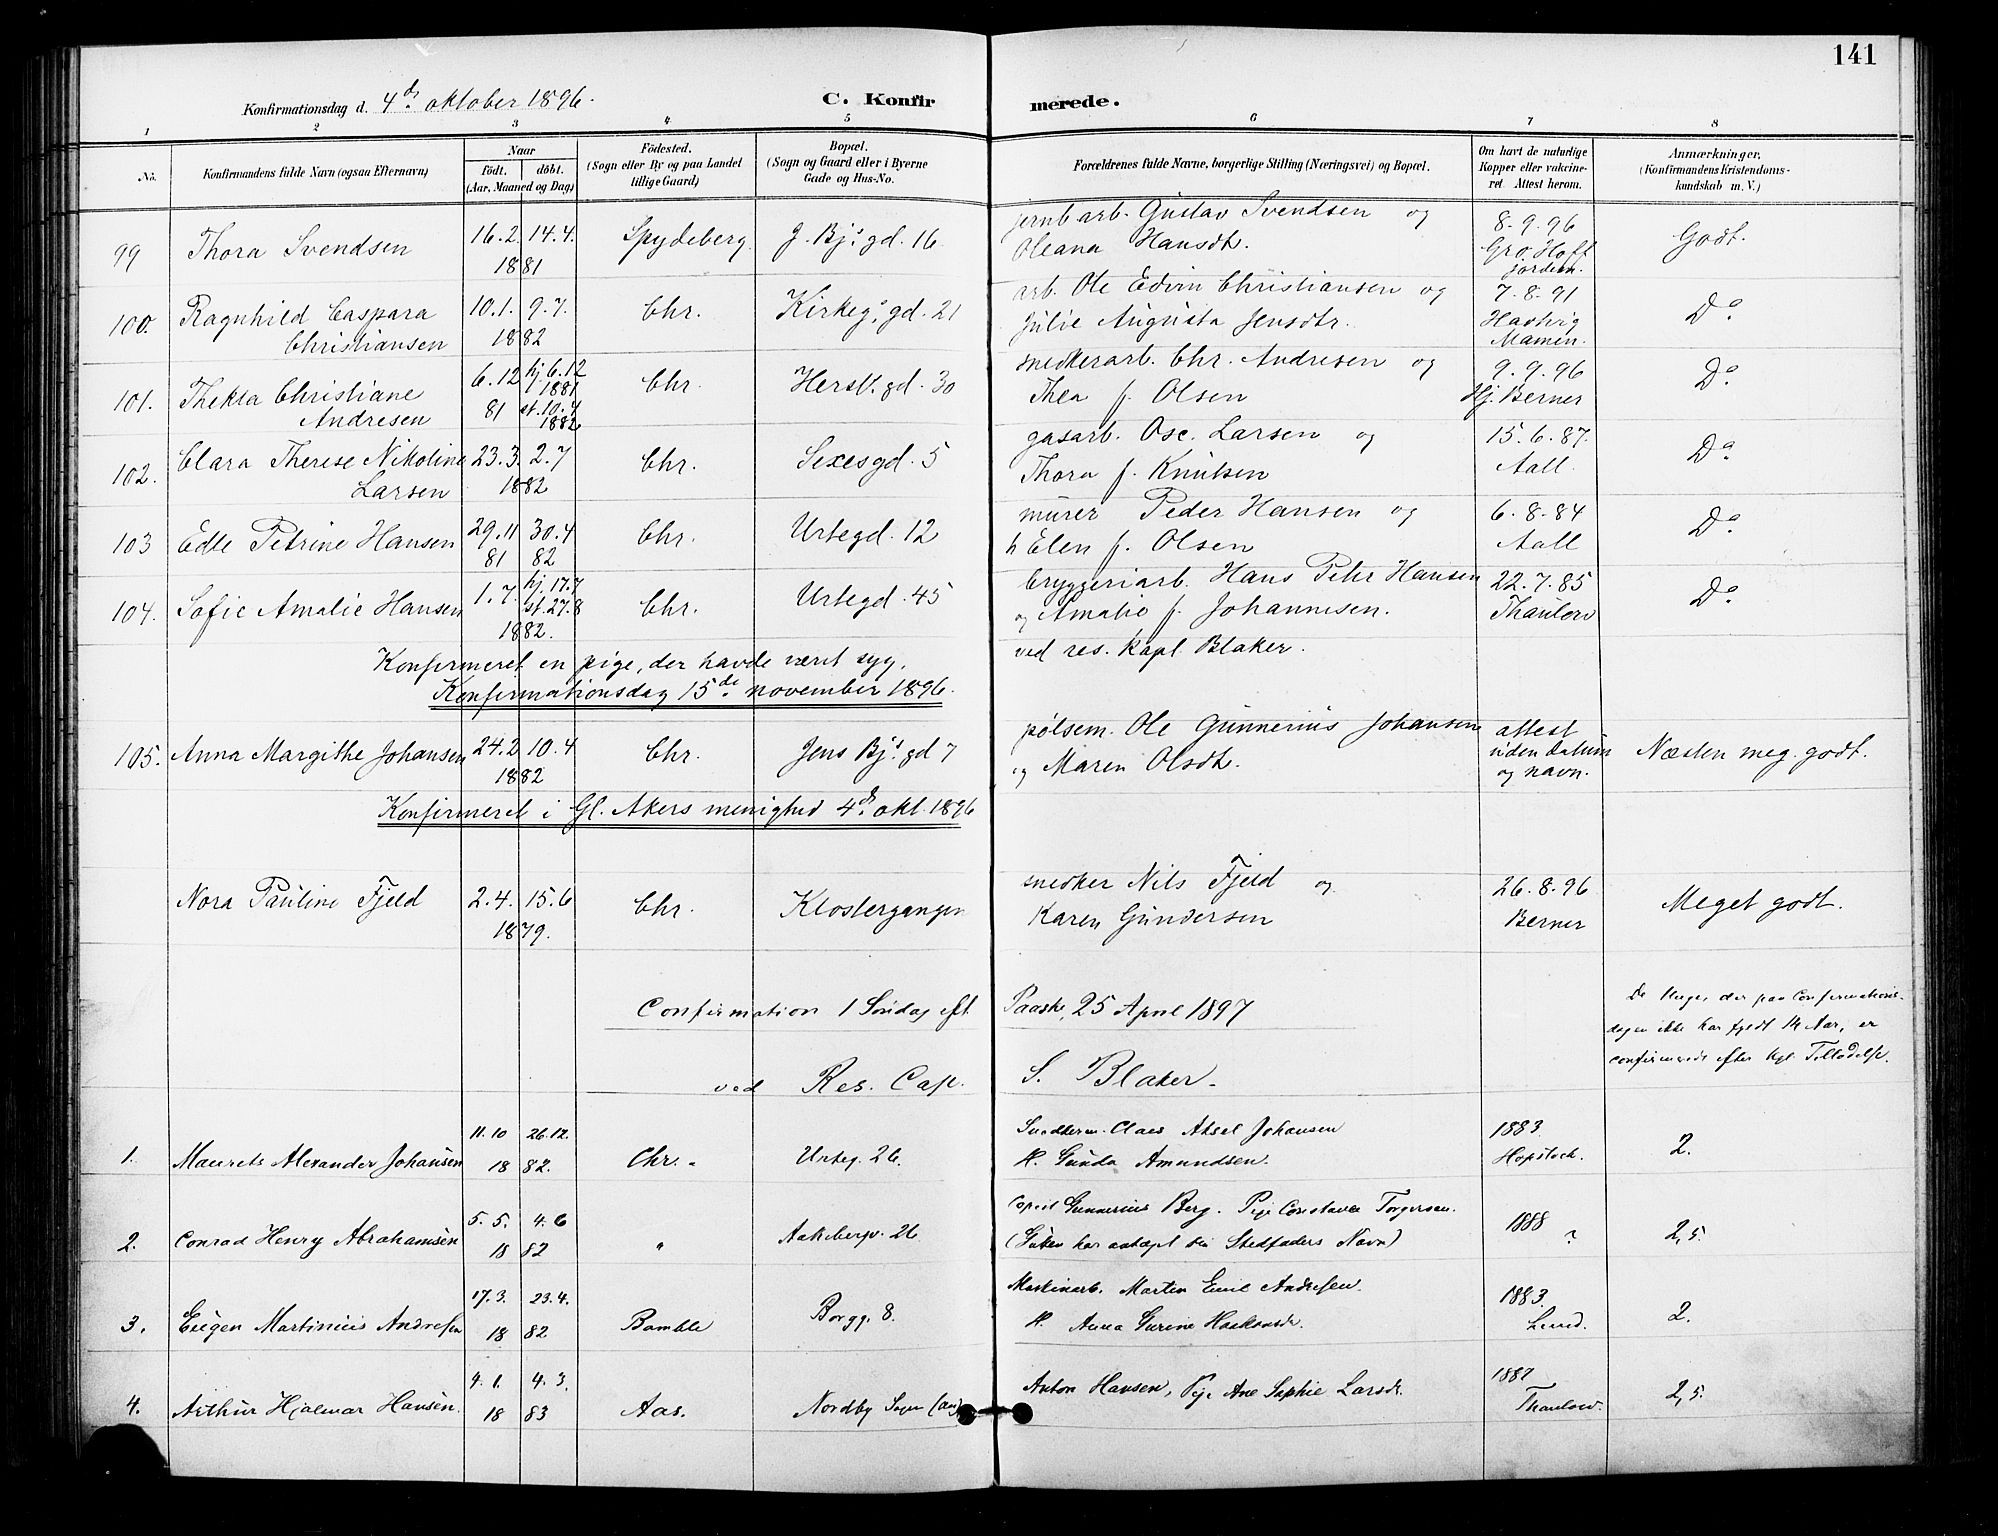 141
Konfirmationsdag d. 4de oktober 1896.
C. Konfirmerede.
1 2 3 4 5 6 7 8
No.
Konfirmandens fulde Navn (ogsaa Efternavn)
Naar
Födt. döbt.
(Aar, Maaned og Dag)
Födested.
(Sogn eller By og paa Landet
tillige Gaard)
Bopæl.
(Sogn og Gaard eller i Byerne
Gade og Hus-No.
Forældrenes fulde Navne, borgerlige Stilling (Næringsvei) og Bopæl.
Om havt de naturlige
Kopper eller vakcine-
ret. Attest herom.
Anmærkninger.
(Konfirmandens Kristendoms-
kundskab m. V.)
99 Thora Svendsen 16.2. 14.4. 1881 Spydeberg J. Bjs gd. 16 jernb arb. Gustav Svendsen og
Oleana Hansdt. 8.9.96 Gro Hoff jordem. Godt.
100. Ragnhild Caspara
Christiansen 10.1. 9.7. 1882 Chr. Kirkeg. gd. 21 arb. Ole Edvin Christiansen og
Julie Augusta Jensdtr. 7.8.91 Hartvig Mamen. Do
101. Thekla Christiane
Andresen 6.12 81 hj 6.12 1881 st. 10.4 1882 Chr. Hersl. gd. 30 snedkerarb. Chr. Andresen og
Thea f. Olsen 9.9.96 Hj. Berner Do.
102. Clara Therese Nikoline
Larsen 23.3. 2.7 1882 Chr. Sexesgd. 5 gasarb. Osc. Larsen og
Thora f. Knutsen 15.6.87. Aall. Do
103 Edle Petrine Hansen 29.11 81 30.4 82 Chr. Urtegd. 12 murer Peder Hansen og
h Elen f. Olsen 6.8.84 Aall Do.
104. Sofie Amalie Hansen 1.7. hj. 17.7 st. 27.8 1882. Chr. Urtegd. 45 bryggeriarb. Hans Peter Hansen
og Amalie f. Johannesen. 22.7.85 Thaulow Do.
Konfirmeret en pige, der havde været syg. ved res. kapl Blaker.
Konfirmationsdag 15de november 1896.
105. Anna Margithe Johansen 24.2 10.4 1882 Chr. Jens Bjs gd 7 pølsem. Ole Gunnerius Johansen
og Maren Olsdt. attest uden datum og navn. Næsten meg. godt.
Konfirmeret i Gl. Akers menighed 4de okt. 1896
Nora Pauline Fjeld 2.4. 15.6 1879. Chr. Klostergangen snedker Nils Fjeld og
Karen Gundersen 26.8.96 Berner Meget godt.
Confirmation 1 Søndag eft Paaske, 25 April 1897
ved Res. Cap. S. Blaker.
De Unge, der paa Confirmations-
dagen ikke har fyldt 14 Aar, er
confirmerede efter kgl. Tilladelse.
1. Maurets Alexander Johansen 11.10 26.12. 1882. Chr. Urteg. 26. Claes Aksel Johansen
H. Gunda Amundsen. 1883. Hopstock. 2.
2. Conrad Henry Abrahamsen 5.5. 4.6 1882 " Aakebergv. 26 Gunnerius Berg. Pige Constance Torgersen.
(Gutten har antaget sin Stedfaders Navn) 1888 ? 2,5.
3. Eugen Martinius Andresen 17.3. 23.4. 1882 Bamble Borgg. 8. Maskinarb. Martin Emil Andresen.
H. Anna Gurine Haakonsdr. 1883. Lund. 2.
4. Arthur Hjalmar Hansen. 4.1. 4.3. 1883 Aas. Nordby Sogn (Aas) Anton Hansen, Pige Ane Sophie Larsdr. 1887 Thaulow. 2,5.